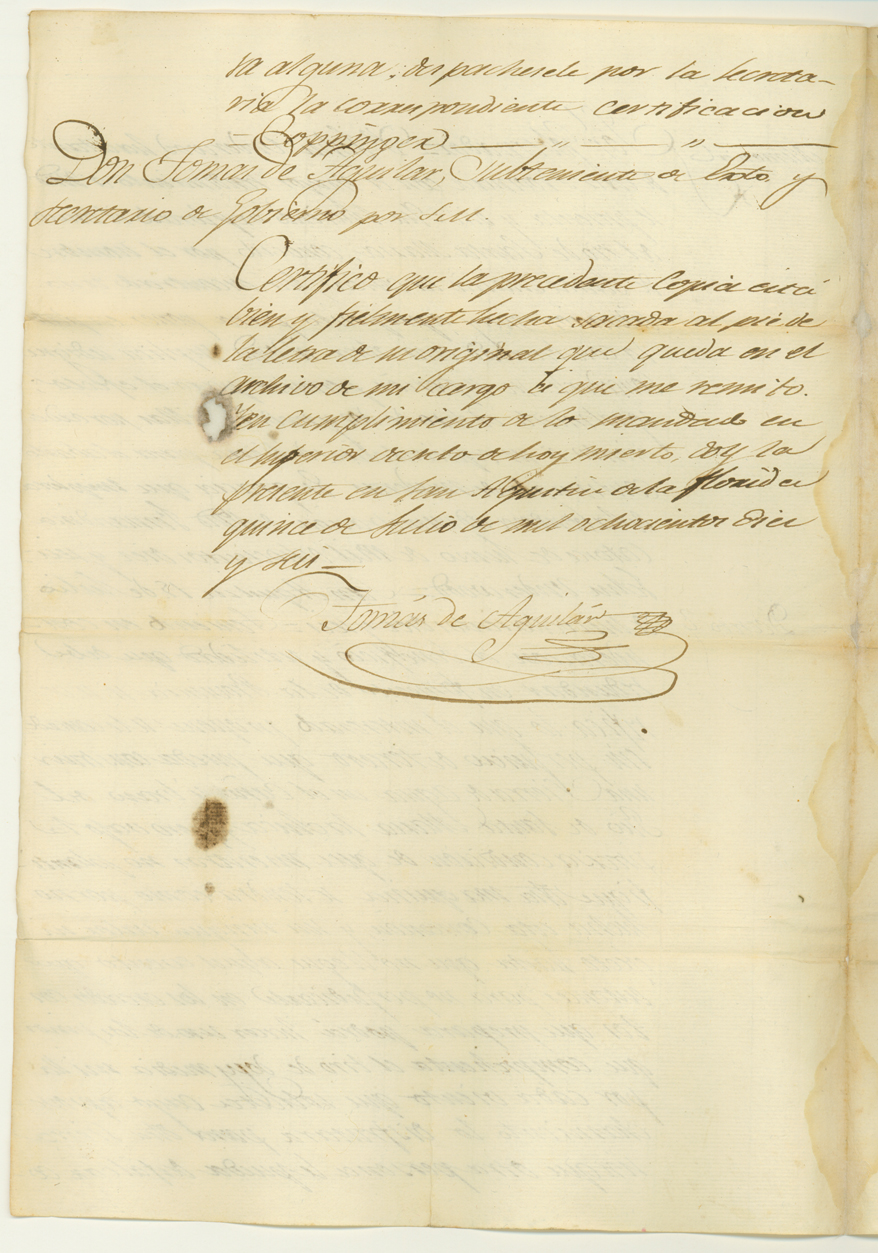 ra alguna; despachesele por la Secreta-
ria la correspondiente certificacion
= Coppinger ——— " ——— " ———
Don Tomas de Aguilar, Subteniente de Exto. y
Secretario de Gobierno por S.M.
Certifico que la precedente Copia está
bien y fielmente hecha sacada al pie de
la letra de su original que queda en el
archivo de mi cargo á que me remito.
Y en cumplimiento de lo mandado en
el Superior decreto de hoy inserto, doy la
presente en San Agustin de la Florida
quince de Julio de mil ochocientos diez
y seis—
Tomás de Aguilár